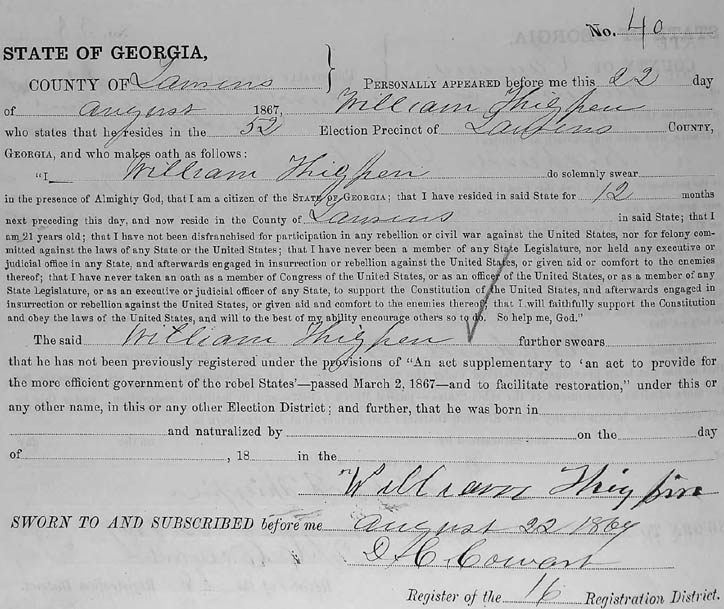 No. 40
STATE OF GEORGIA,
COUNTY OF Laurens } PERSONALLY APPEARED before me this 22 day
of August 1867, William Thigpen
who states that he resides in the 52 Election Precinct of Laurens COUNTY,
GEORGIA, and who makes oath as follows:
"I William Thigpen do solemnly swear
in the presence of Almighty God, that I am a citizen of the STATE OF GEORGIA; that I have resided in said State for 12 months
next preceding this day, and now reside in the County of Laurens in said State; that I
am 21 years old; that I have not been disfranchised for participation in any rebellion or civil war against the United States, nor for felony com-
mitted against the laws of any State or the United States; that I have never been a member of any State Legislature, nor held any executive or
judicial office in any State, and afterwards engaged in insurrection or rebellion against the United States, or given aid or comfort to the enemies
thereof; that I have never taken an oath as a member of Congress of the United States, or as an officer of the United States, or as a member of any
State Legislature, or as an executive or judicial officer of any State, to support the Constitution of the United States, and afterwards engaged in
insurrection or rebellion against the United States, or given aid and comfort to the enemies thereof; that I will faithfully support the Constitution
and obey the laws of the United States, and will to the best of my ability encourage others so to do. So help me, God."
The said William Thigpen further swears
that he has not been previously registered under the provisions of "An act supplementary to 'an act to provide for
the more efficient government of the rebel States'—passed March 2, 1867—and to facilitate restoration," under this or
any other name, in this or any other Election District; and further, that he was born in
and naturalized by on the day
of , 18 in the
William Thigpin
SWORN TO AND SUBSCRIBED before me August 22 1867
D H Cowart
Register of the 16 Registration District.